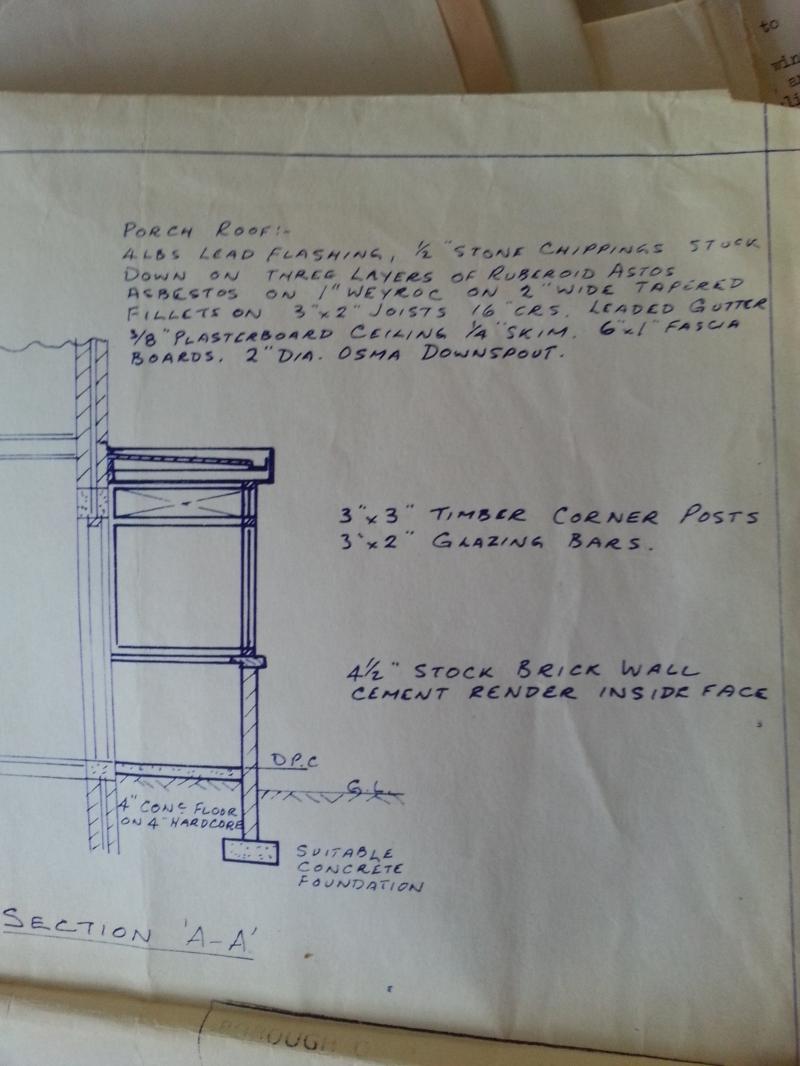 to
PORCH ROOF:-
4 LBS LEAD FLASHING, ½" STONE CHIPPINGS STUCK
DOWN ON THREE LAYERS OF RUBEROID ASTOS
ASBESTOS ON 1" WEYROC ON 2" WIDE TAPERED
FILLETS ON 3"x2" JOISTS 16" CRS. LEADED GUTTER
3/8" PLASTERBOARD CEILING ¼" SKIM. 6"x1" FASCIA
BOARDS. 2" DIA. OSMA DOWNSPOUT.
3"x3" TIMBER CORNER POSTS
3"x2" GLAZING BARS.
4½" STOCK BRICK WALL
CEMENT RENDER INSIDE FACE
D.P.C
G.L.
4" CONC FLOOR
ON 4" HARDCORE
SUITABLE
CONCRETE
FOUNDATION
SECTION 'A-A'
BOROUGH